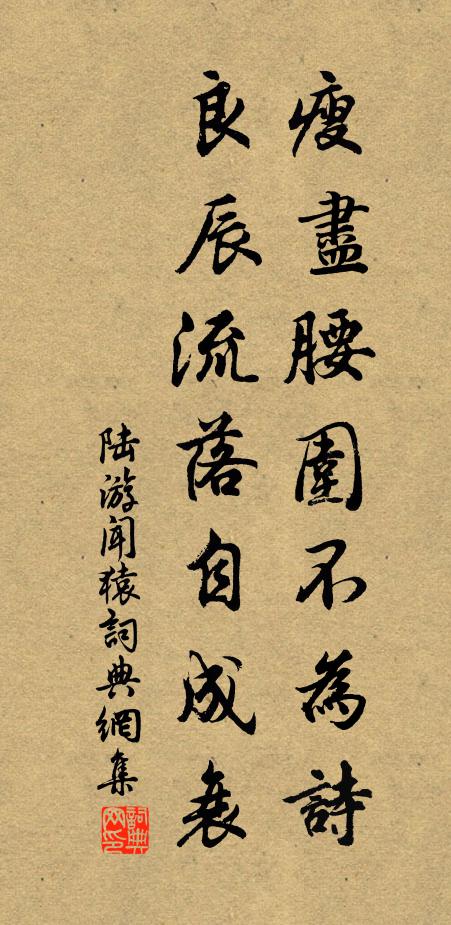 瘦盡腰圍不為詩
良辰流落自成衰
陆游闻猿詞典網集
詞典网印